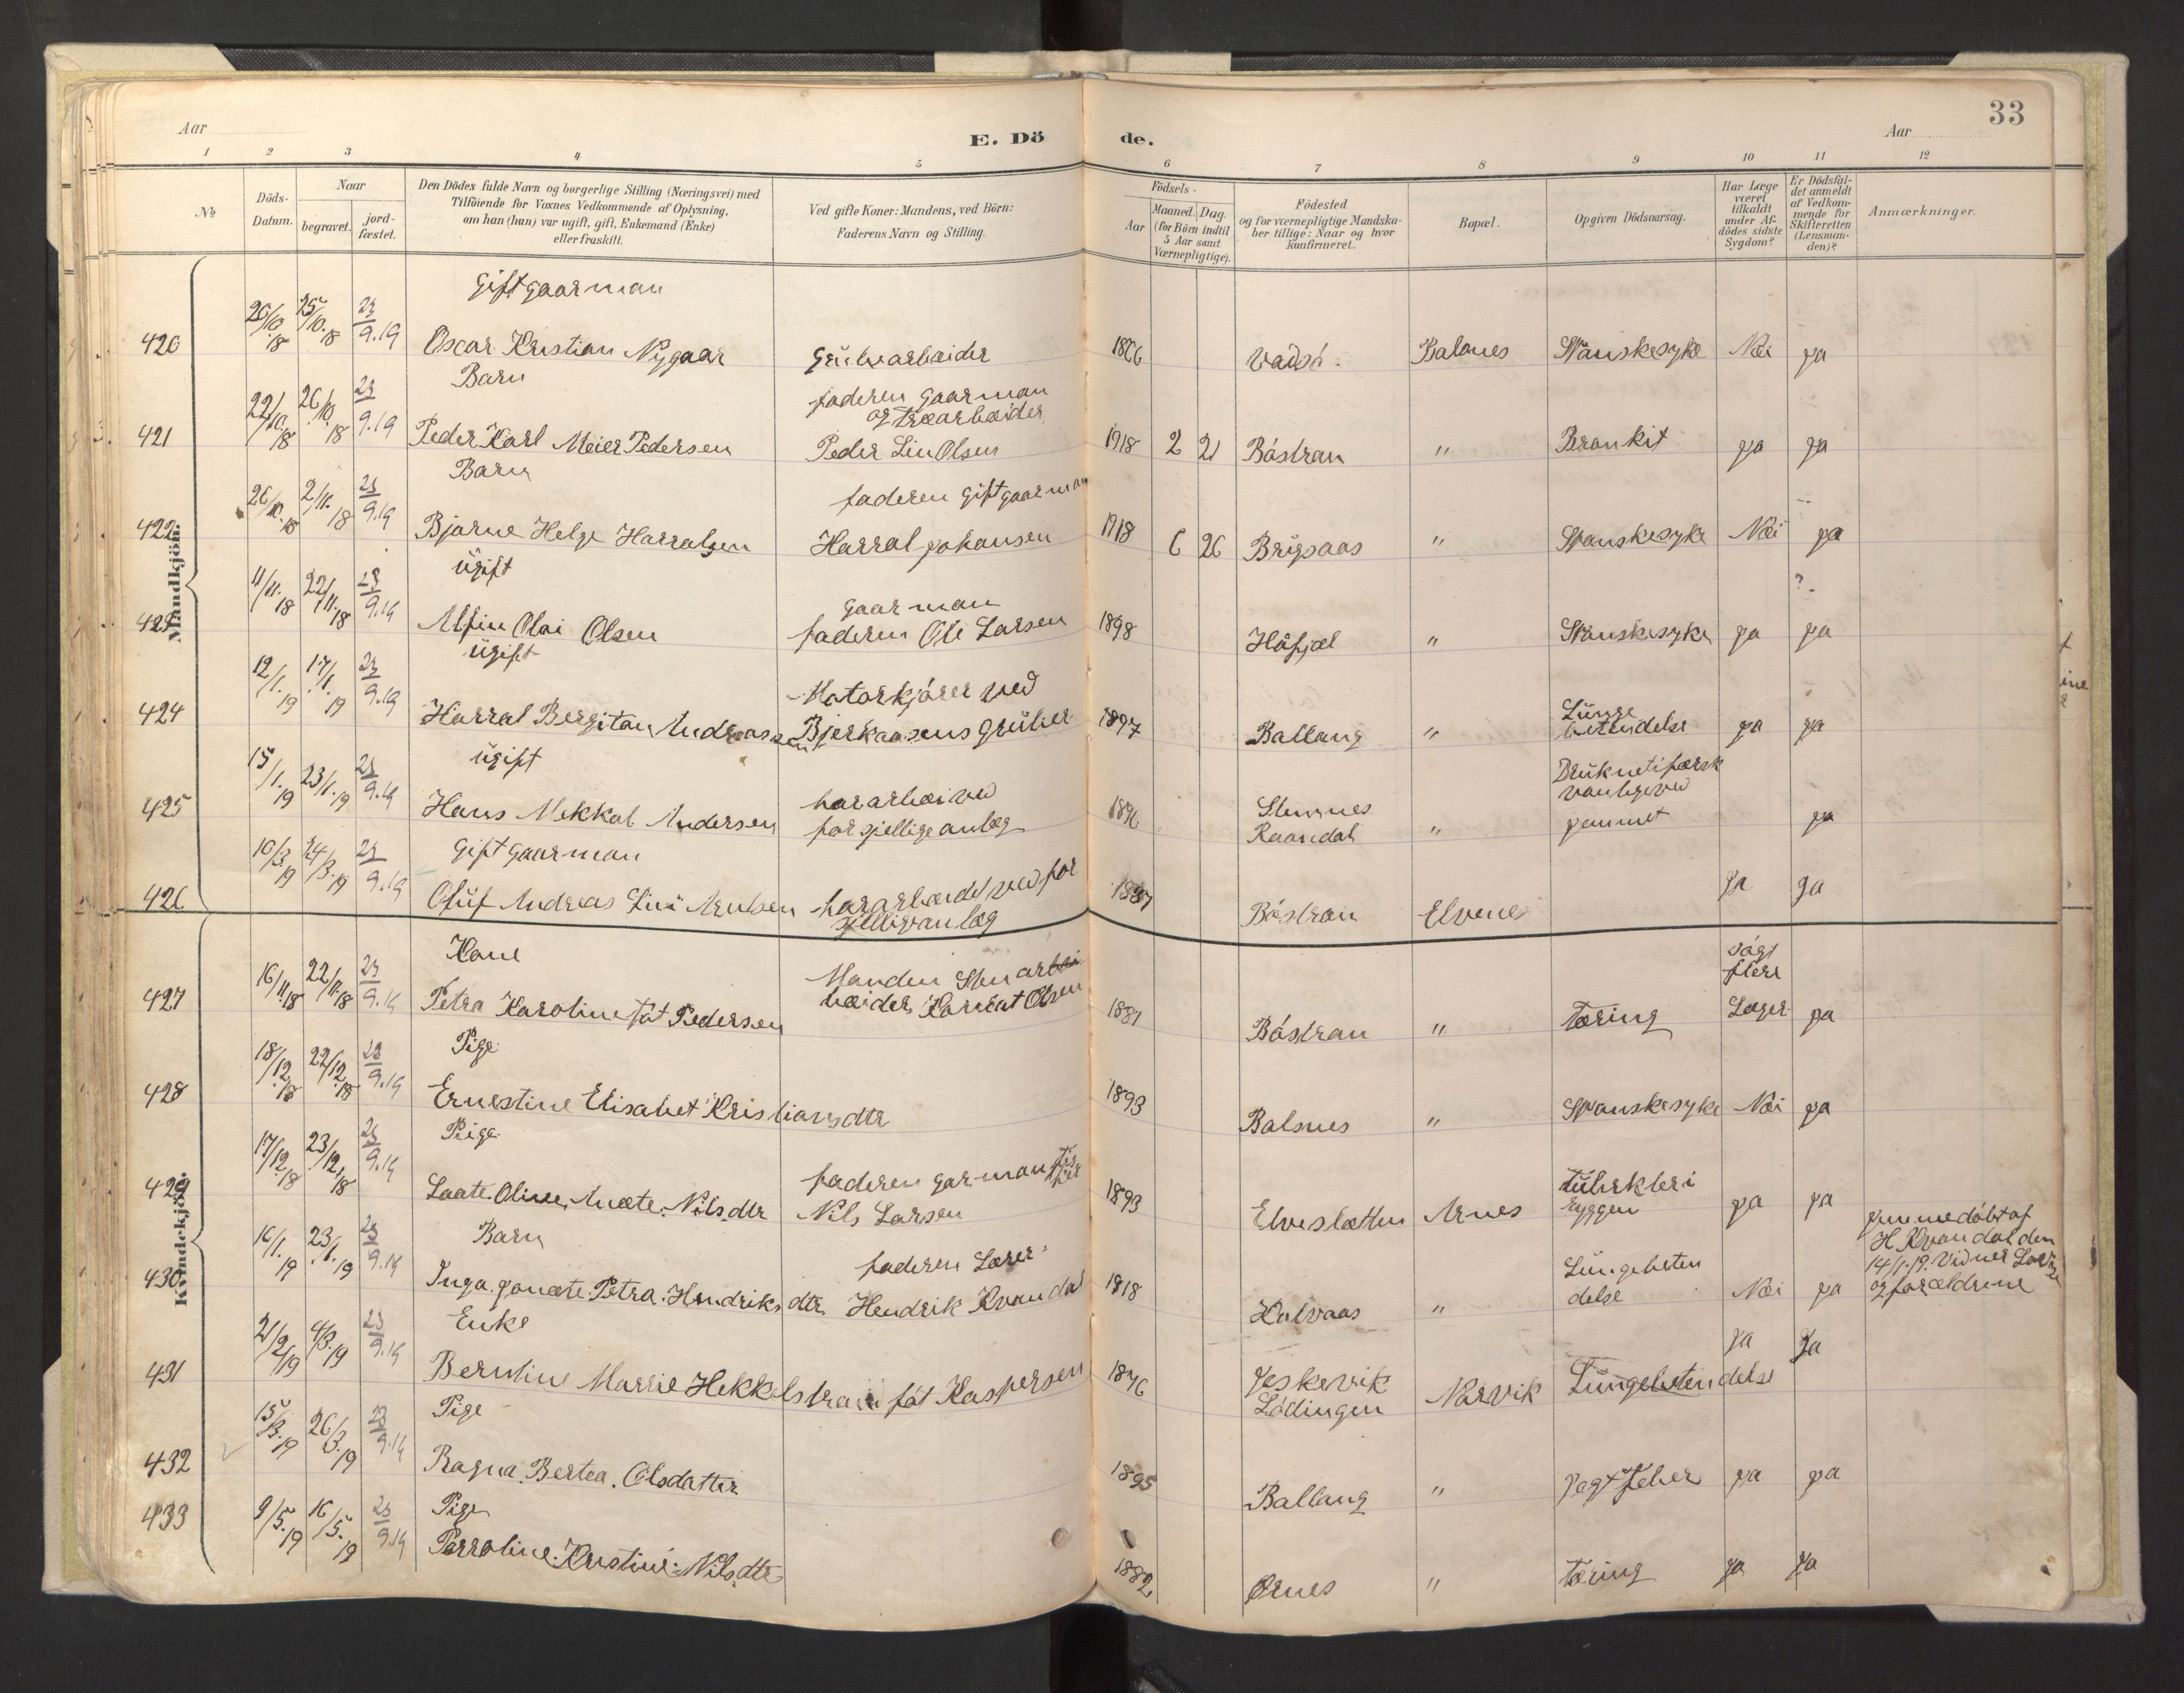 33
Aar
E. Dö
de.
Aar
1 2 3 4 5 6 7 8 9 10 11 12
No
Döds-
Datum.
Naar
begravet.
jord-
fæstet.
Den Dödes fulde Navn og borgerlige Stilling (Næringsvei) med
Tilföiende for Voxnes Vedkommende af Oplysning,
om han (hun) var ugift, gift, Enkemand (Enke)
eller fraskilt.
Ved gifte Koner: Mandens, ved Börn:
Faderens Navn og Stilling.
Födsels-
Aar
Maaned. Dag.
(for Börn indtil
5 Aar samt
Værnepligtige).
Födested
og for værnepligtige Mandska-
ber tillige: Naar og hvor
konfirmeret.
Bopæl.
Opgiven Dödsaarsag.
Har Læge
været
tilkaldt
under Af-
dödes sidste
Sygdom?
Er Dödsfal-
det anmeldt
af Vedkom-
mende for
Skifteretten
(Lensman-
den)?
Anmærkninger.
Mandkjön.
Gift gaarman
420 20/10.18 25/10.18 23/9.19 Oscar Kristian Nygaar Grübearbeider 1866 Vadsö. Balsnes Spanskesyke Nei ja
Barn
faderen gaarman
og træarbeider
421 22/10.18 26/10.18 23/9.19 Peder Karl Meier Pedersen Peder Lin Olsen 1918 2 21 Bóstran " Bronkit ja ja
Barn
faderen gift gaarman
422 26/10.18 2/11.18 23/9.19 Bjarne Helge Harralsen Harral Johansen 1918 6 26 Brigsaas " Spanskesyke Nei ja
ügift
gaarman
?
423 11/11.18 22/11.18 23/9.19 Alfin Olai Olsen faderen Ole Larsen 1898 Håfjæl " Spanskesyke ja ja
ügift
Motorkjórer ved
Lünge
424 12/1.19 17/1.19 23/9.19 Harral Bergitan Andreassen Bjerkaasens Grüber 1897 Ballang " betendelse ja ja
ügift
Drüknet i færsk
har arbei ved
vand
425 15/1.19 23/1.19 23/9.19 Hans Mekkal Andersen forsjellige anlæg 1896 Raandal " ja
Gift gaarman
426 10/3.19 24/3.19 23/9.19 Olüf Andreas Arntsen har arbeidet ved for
sjellig anlæg Bóstran Elvenes Ja Ja
Kvindekjön.
Kone
Manden
sógt
flere
427 16/11.18 22/11.18 23/9.19 Petra Karoline föt Pedersen beider Olsen 1881 Bóstran " Tæring Læger ja
Pige
428 18/12.18 22/12.18 23/9.19 Ernestine Elisabet Kristiansdtr 1893 Balsnes " Spanskesyke Nei ja
Pige
faderen garman fis
ker
tüberkler i
429 17/12.18 23/12.18 23/9.19 Laate Oline Anete Nilsdtr Nils Larsen 1893 Elveslætten Arnes Ryggen ja ja
Barn
faderen Lærer
Lüngebeten
delse
430 16/1.19 23/1.19 23/9.19 Inga Janete Petra Hendriksdtr Hendrik Kvandal 1918 Halvaas " Nei ja
jemmedóbt af
H Kvandal den
14/1.19. Vidner
og forældrene
Enke
431 21/2.19 4/3.19 23/9.19 Berntine Marrie Hekkelstran föt Kaspersen 1876 Jeskevik
Lódingen Narvik Lüngebetendelse ja Ja
Pige
432 15/3.19 26/3.19 23/9.19 Ragna Bertea Olsdatter 1895 Ballang " ja ja
Pige
433 9/5.19 16/5.19 23/9.19 Parroline Kristine Nilsdtr 1882 Ørnes " Tæring ja ja